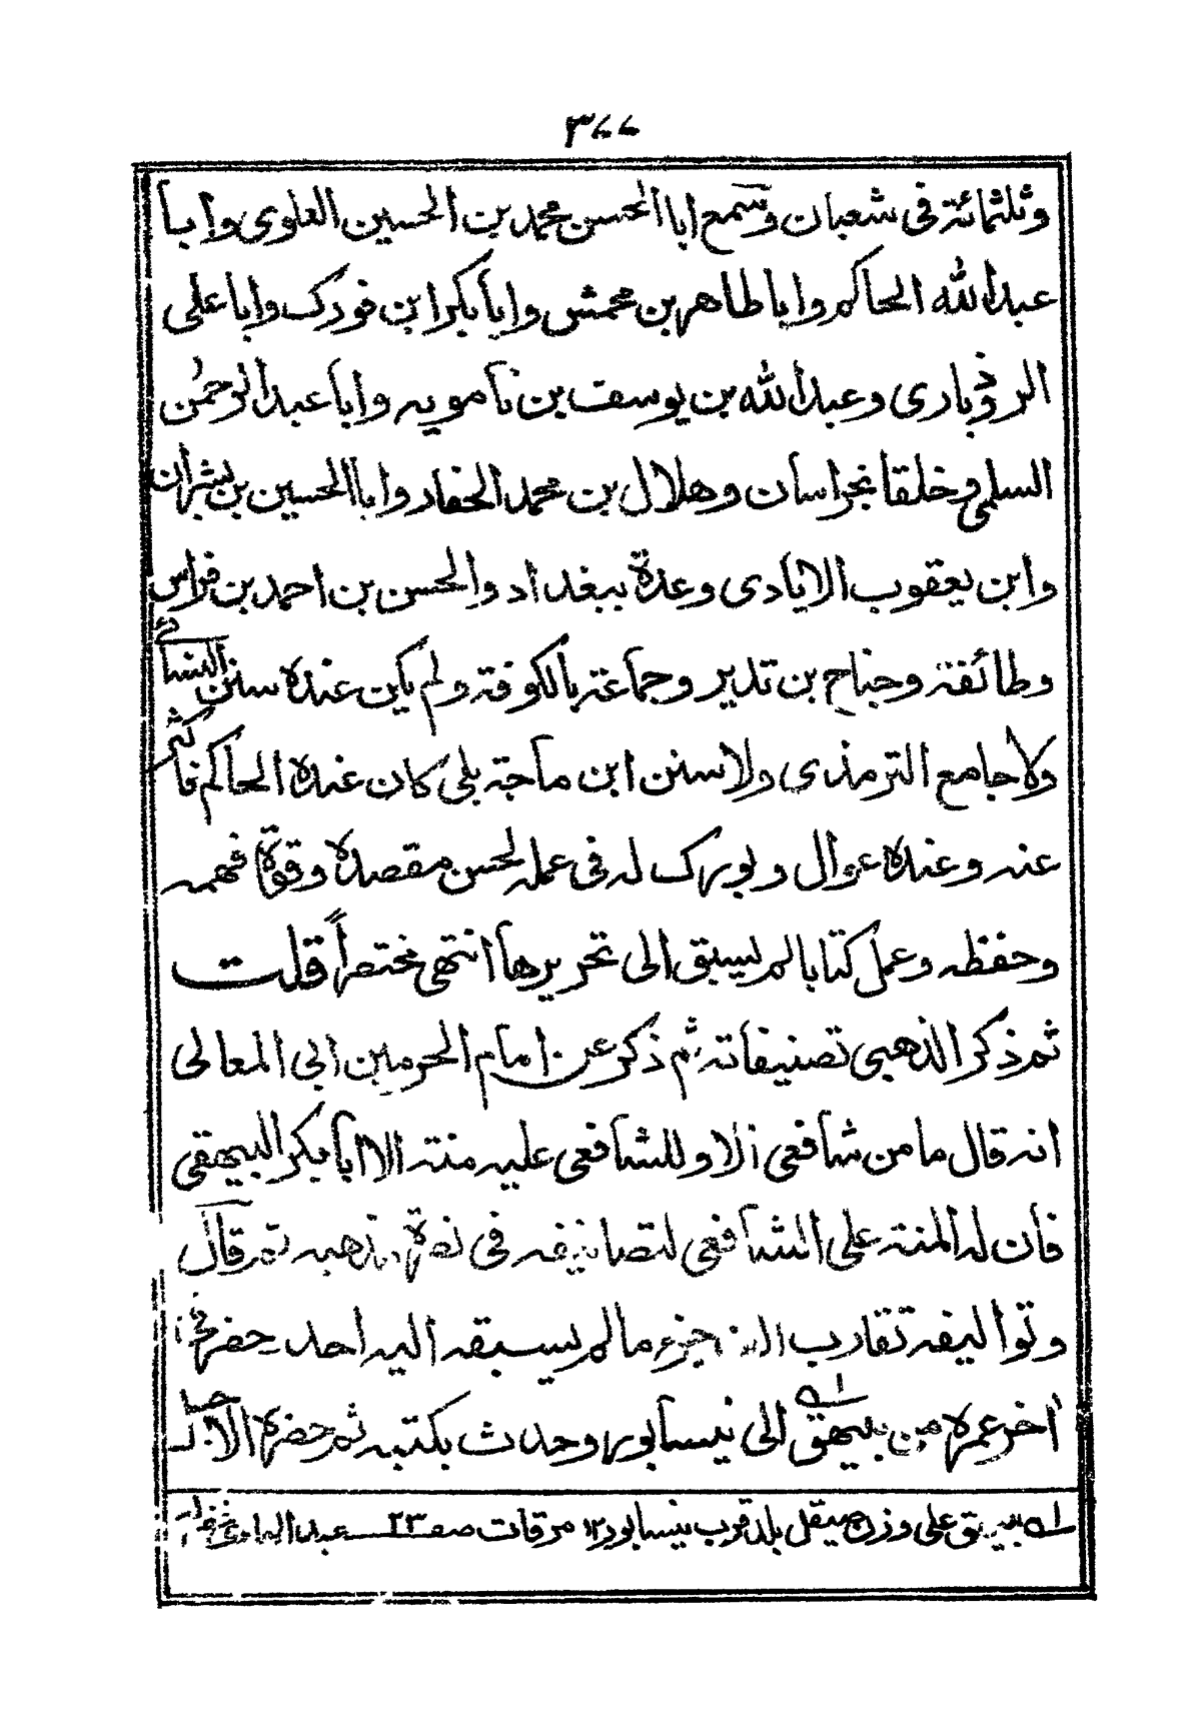 ٣٧٧
وثلثمائة فى شعبان وسمع ابا الحسن محمد بن الحسين العلوى وابا
عبدالله الحاكم وابا طاهر بن محمش وابا بكر ابن فورك وابا على
الروذبارى وعبدالله بن يوسف بن نامويه وابا عبدالرحمٰن
السلمى وخلقا بخراسان وهلال بن محمد الحفار وابا الحسين بن بشران
وابن يعقوب الايادى وعدة ببغداد والحسن بن احمد بن فراس
وطائفة وجناح بن تدير وجماعة بالكوفة ولم يكن عنده سنن النسائے
ولا جامع الترمذى ولا سنن ابن ماجة بلى كان عنده الحاكم فاكثر
عنه وعنده عوال وبورك له فى عمله لحسن مقصده وقوة فهمه
وحفظه وعمل كتابا لم يسبق الى تحريرها انتهى مختصراً قلت
ثم ذكر الذهبى تصنيفاته ثم ذكر عن امام الحرمين ابى المعالى
انه قال ما من شافعى الا وللشافعى عليه منة الا ابا بكر البيهقى
فان له المنة على الشافعى لتصانيفه فى نصرة مذهبه ثم قال
وتواليفه تقارب الف جزء مالم يسبقه اليه احد حضر فى
اخر عمره من بيهق ا؎ الى نيسابور وحدث بكتبه ثم حضره الاجل
ا؎ بيهق على وزن صيقل بلد قرب نيسابور ١٢ مرقات صفـ ٢٣ عبدالهادى